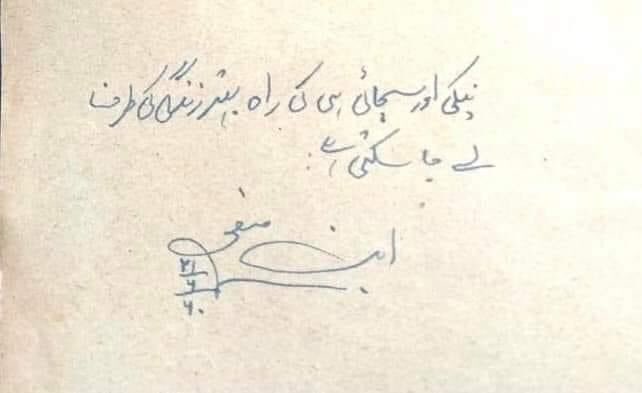 نیکی اور سچائی ہی کی راہ بہتر زندگی کی طرف
لے جا سکتی ہے۔
ابن صفی
۲۱
۶
۶۰